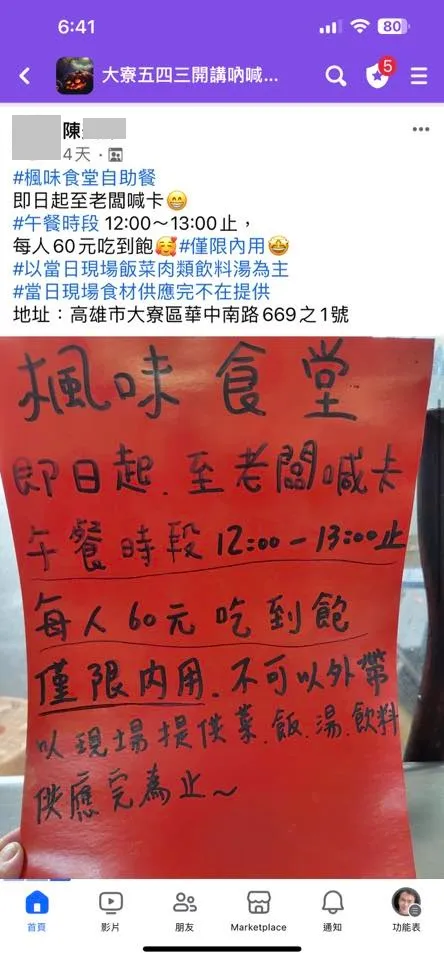 6:41
80
大寮五四三開講吶喊...
5
陳
4天
#楓味食堂自助餐
即日起至老闆喊卡😁
#午餐時段 12:00～13:00止，
每人60元吃到飽🥰#僅限內用🤩
#以當日現場飯菜肉類飲料湯為主
#當日現場食材供應完不在提供
地址：高雄市大寮區華中南路669之1號
楓味食堂
即日起.至老闆喊卡
午餐時段12:00－13:00止
每人60元吃到飽
僅限內用.不可以外帶
以現場提供菜.飯.湯.飲料
供應完為止～
首頁
影片
朋友
Marketplace
通知
功能表